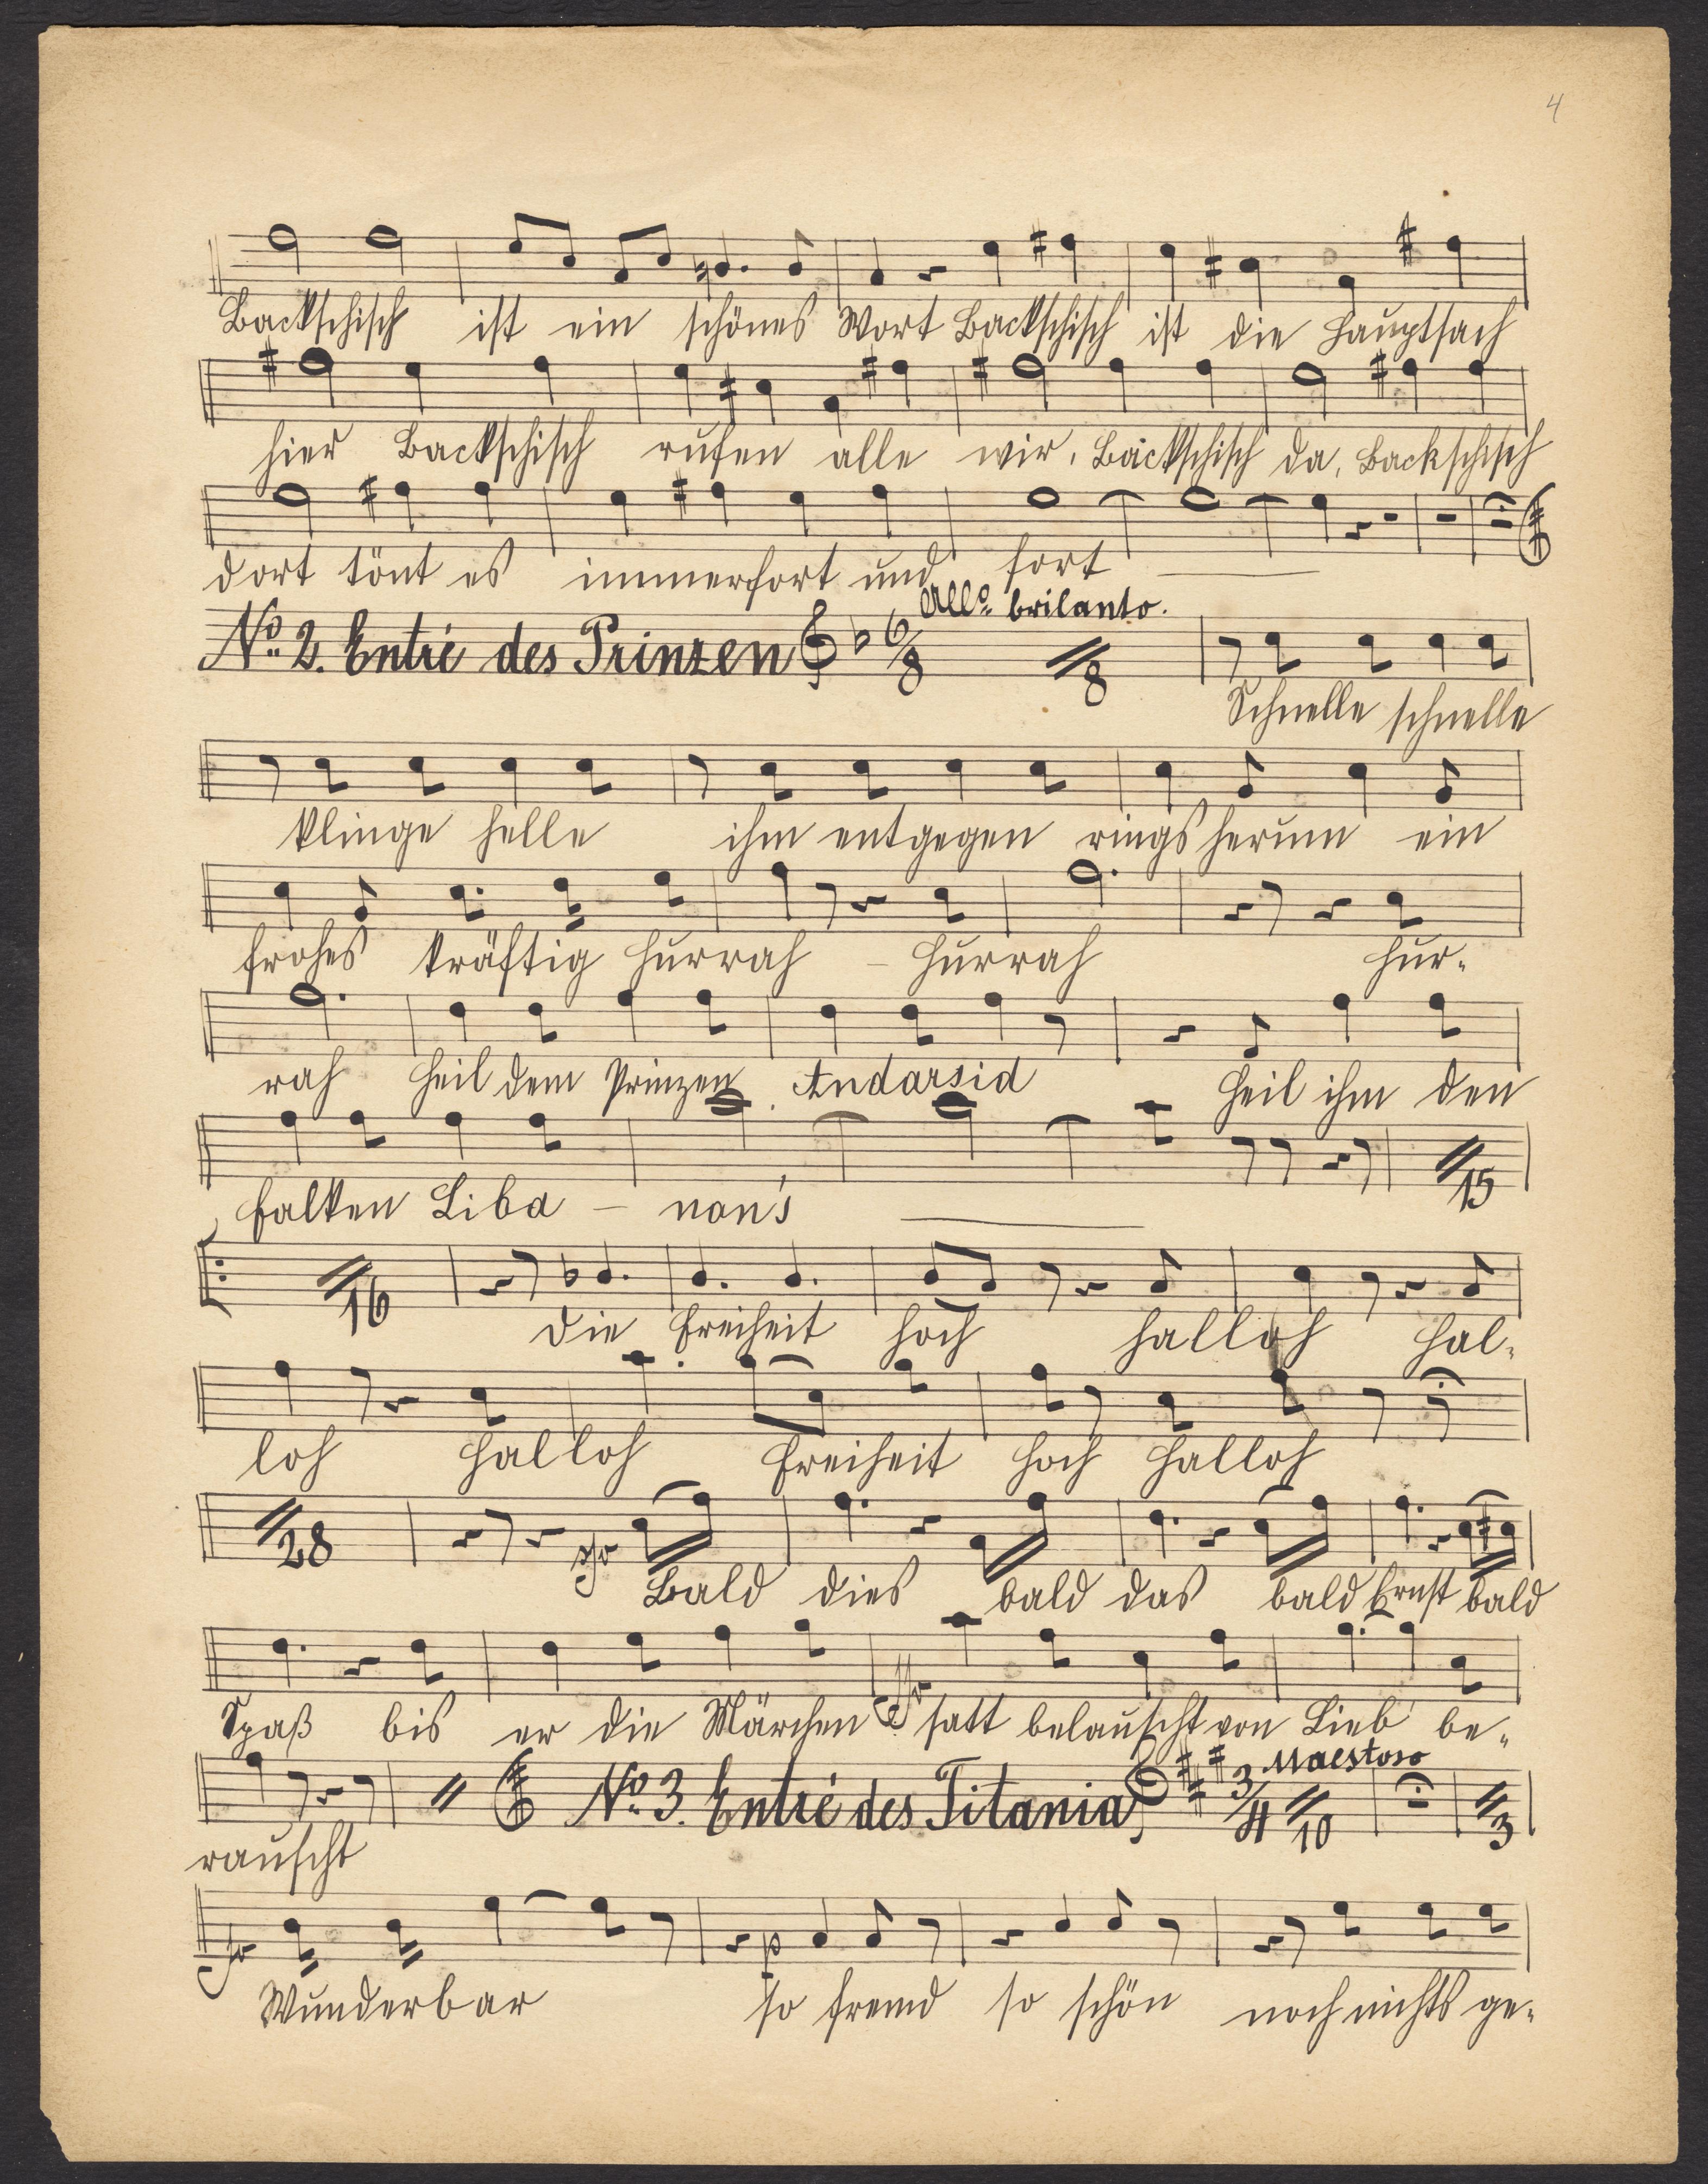 4
Backschisch ist ein schönes Wort Backschisch ist die Hauptsach
hier Backschisch rufen alle wir. Backschisch da, Backschisch
dort tönt es immerfort und fort
No. 2. Entré des Prinzen 6/8 Allo. brilanto. 8
Schnelle schnelle
klinge helle ihm entgegen rings herum ein
frohes kräftig Hurrah – Hurrah Hur-
rah Heil dem Prinzen Andarsid Heil ihm den
Falken Liba – non's
15
16
die Freiheit hoch halloh hal-
loh halloh Freiheit hoch halloh
28
Bald dies bald das bald Ernst bald
Spaß bis er die Märchen satt belauscht von Lieb' be-
No. 3. Entré des Titania 3/4 Maestoso 10 3
rauscht
p
Wunderbar so fremd so schön noch nichts ge-